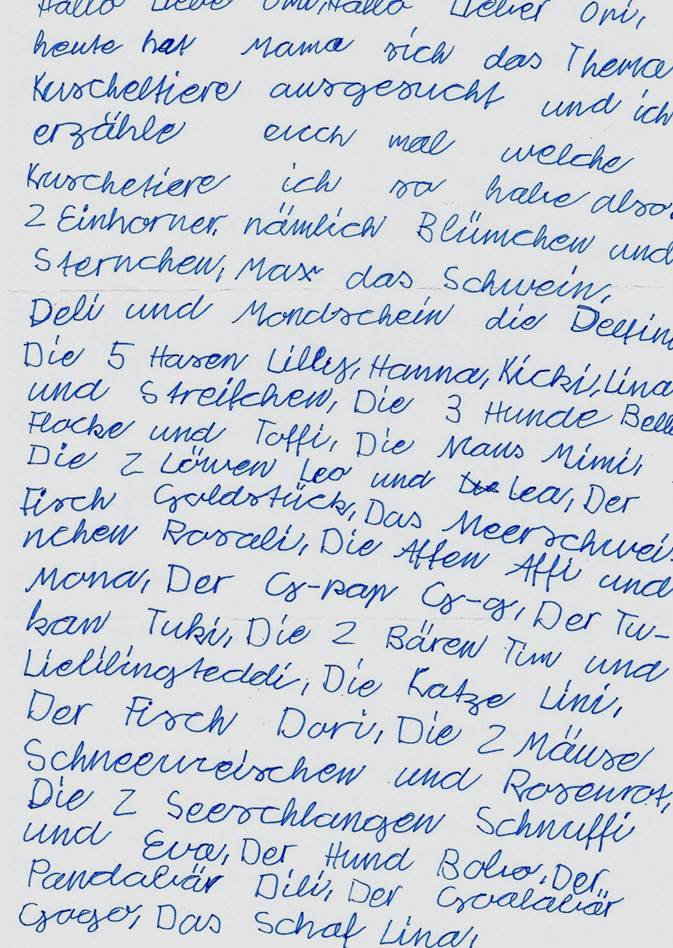 Hallo Liebe Omi, Hallo Lieber Opi,
heute hat Mama sich das Thema
Kuscheltiere ausgesucht und ich
erzähle euch mal welche
Kuschetiere ich so habe also:
2 Einhorner, nämlich Blümchen und
Sternchen, Max das Schwein,
Deli und Mondschein die Delfine
Die 5 Hasen Lilly, Hanna, Kicki, Lina
und Streifchen, Die 3 Hunde Bello
Flocke und Toffi, Die Maus Mimi,
Die 2 Löwen Leo und Lea, Der
Fisch Goldstück, Das Meerschwei-
nchen Rosali, Die Affen Affi und
Mona, Der Der Tu-
kan Tuki, Die 2 Bären Tim und
Lieblingsteddi, Die Katze Lini,
Der Fisch Dori, Die 2 Mäuse
Schneeweischen und Rosenrot,
Die 2 Seeschlangen Schnuffi
und Eva, Der Hund Bobo, Der
Pandabär Dili, Der Goalabär
Gogo, Das Schaf Lina,